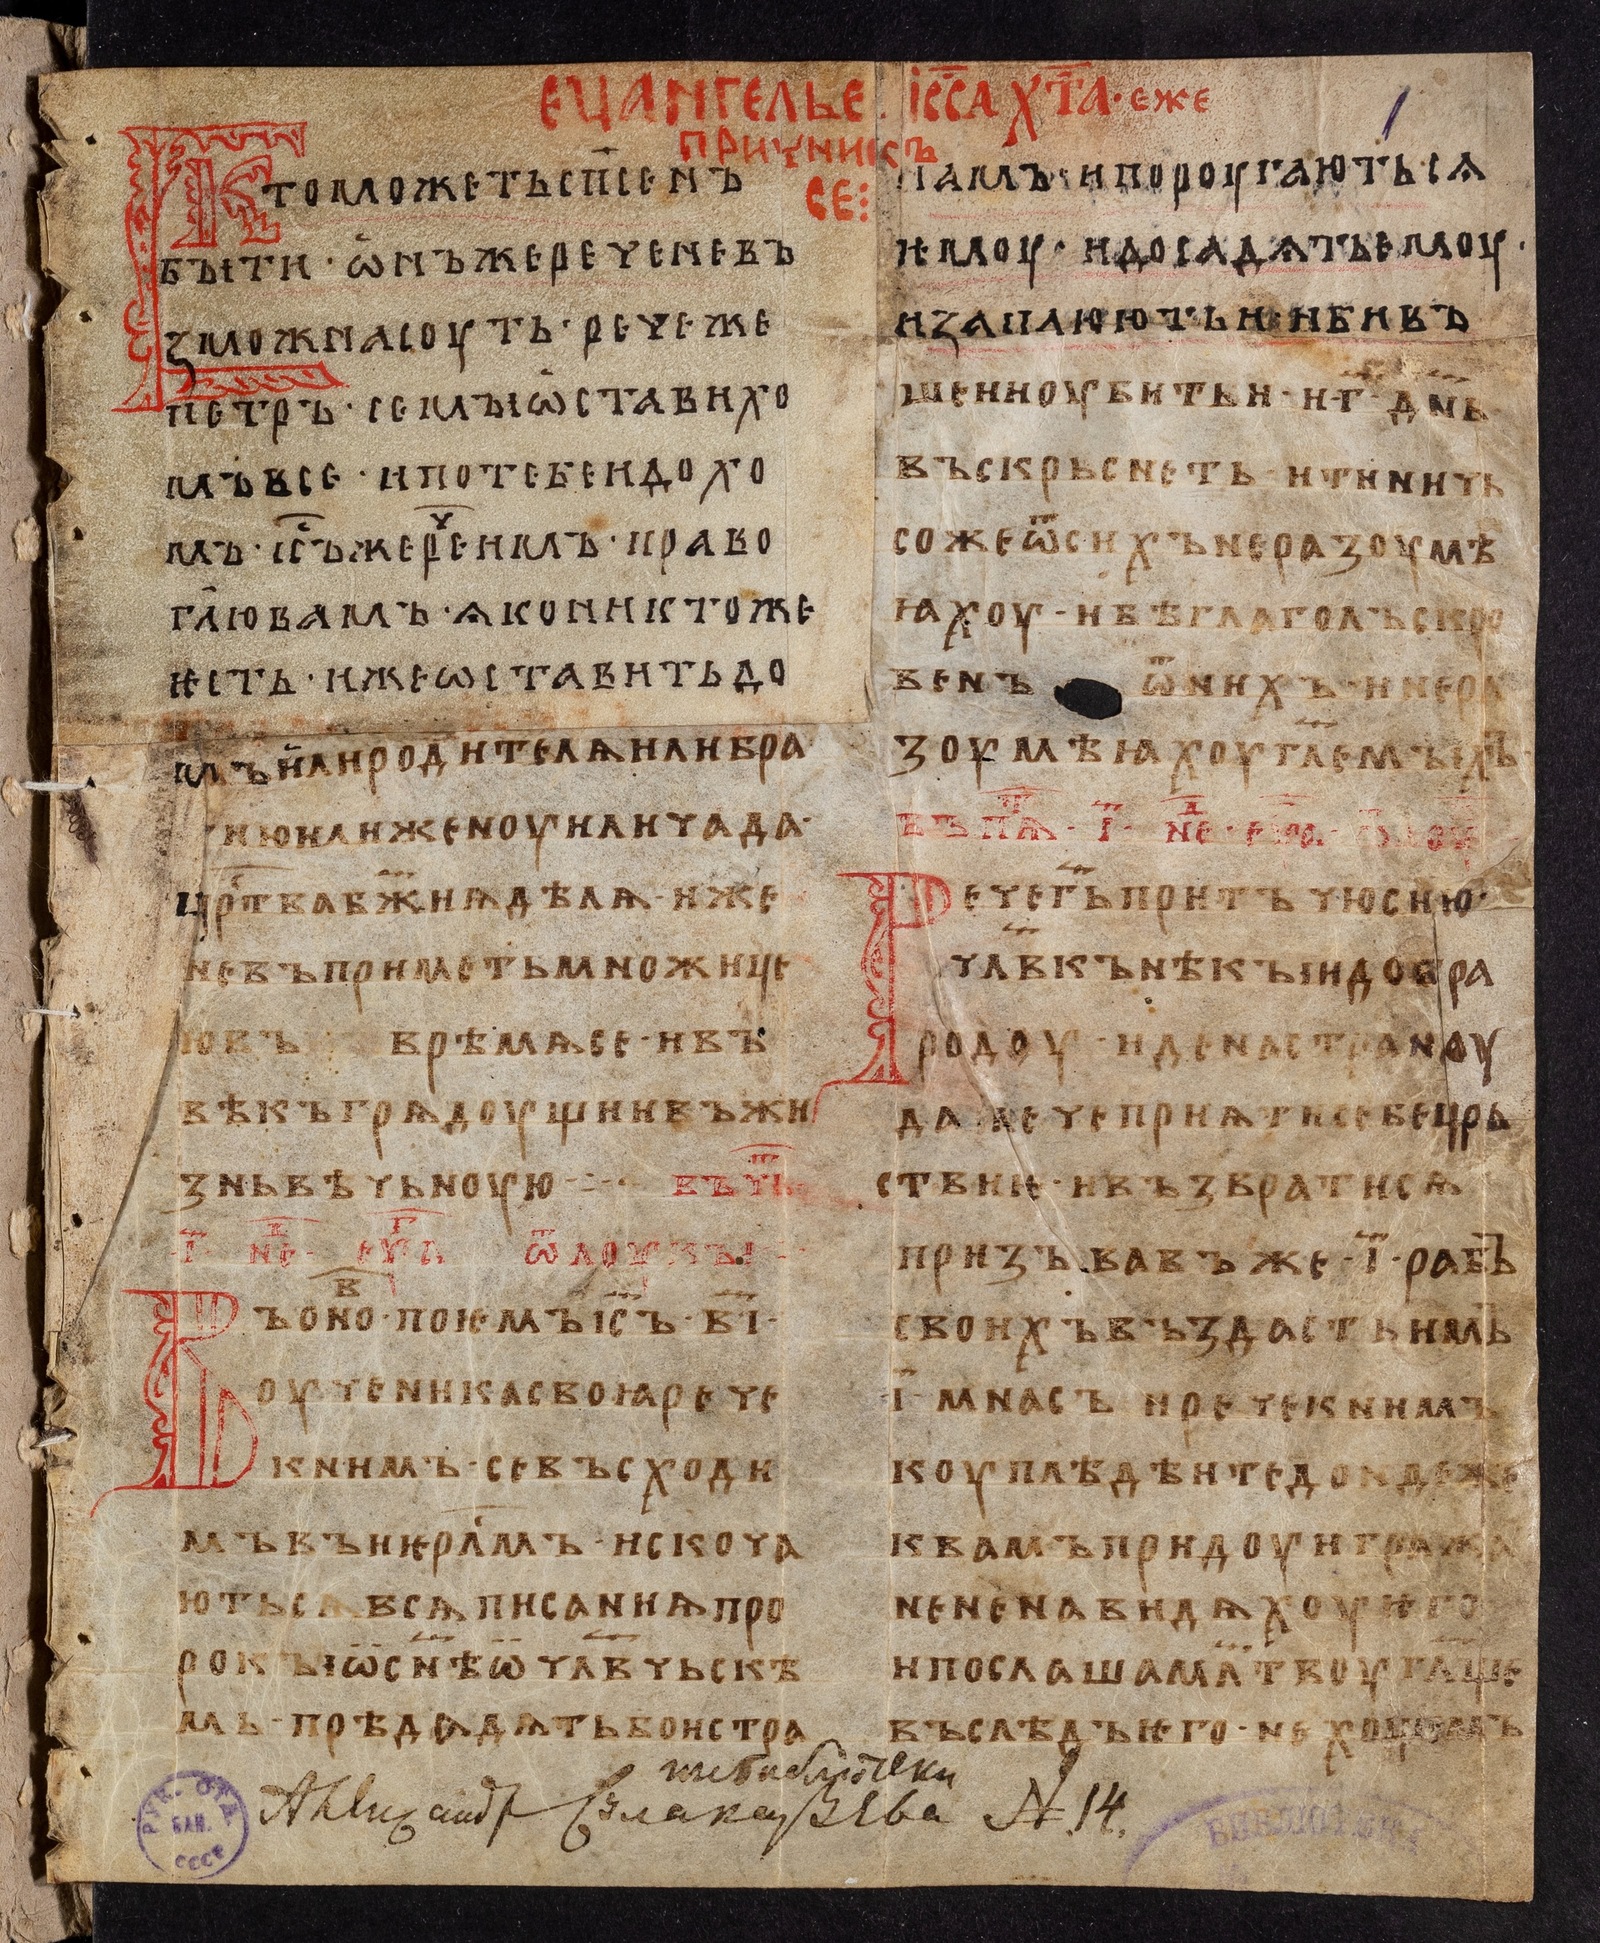 ЕЦАНГЕЛЬЕ І҃ССА Х҃ТА · ЕЖЕ
ПРИЧНИКЪ
СЕ:
КТОМОЖЕТЬСП҃СЕНЪ
БЪІТИ · ѾНЪЖЕРЕЧЕНЕВЪ
ЗМОЖНАСОУТЬ · РЕЧЕЖЕ
ПЕТРЪ · СЕМЪІѠСТАВИХО
МЪВСЕ · ИПОТЕБЕИДОХО
МЪ · І҃СЪЖЕРЕ҃ЧИМЪ · ПРАВО
ГЛ҃ЮВАМЪ · ѦКОНИКТОЖЕ
ѤСТЬ · ИЖЕѠСТАВИТЬДО
МЪИЛИРОДИТЕЛѦИЛИБРА
ТИЮИЛИЖЕНОУИЛИЧАДА ·
ЦР҃ТВАБ҃ЖИѦДѢЛѦ · ИЖЕ
НЕВЪПРИМЕТЬМНОЖИЦЕ
ЮВЪ ВРѢМѦСЕ · ИВЪ
ВѢКЪГРѦДОУЩИИВЪЖИ
ЗНЬВѢЧЬНОУЮ ВЪЧ҃
І҃ · Н҃Е · ЕУ҃А Ѿ ЛОУКЪІ
ВЪОНО · ПОЮМЪІ҃СЪ · В҃І ·
ОУЧЕНИКАСВОꙖРЕЧЕ
КНИМЪ · СЕВЪСХОДИ
МЪВЪИѤРЛ҃МЪ · ИСКОЧА
ЮТЬСѦВСѦПИСАНИѦПРО
РОКЪІѾСН҃ѢѾЧЛ҃ВЧЬСКѢ
МЬ · ПРѢДАДѦТЬБОИСТРА
НАМЪ · ИПОРОУГАЮТЬСѦ
ѤМОУ · ИДОСАДѦТЬЕМОУ ·
ИЗАПЛЮЮТЬИ · ИБИВЪ
ШЕИИОУБИТЬИ · И · Г҃ · ДН҃Ь
ВЪСКРЬСНЕТЬ · ИТИНИЧЬ
СОЖЕѾСИХЪНЕРАЗОУМѢ
ꙖХОУ · ИБѢГЛАГОЛЪСКРО
ВЕНЪ ѾНИХЪ · ИНЕРА
ЗОУМѢꙖХОУГЛ҃ЕМЪІХЪ ·
ВЪП҃Ѧ · І҃ · Н҃Е · ЛОУ
РЕЧЕГ҃ЬПРИТЪЧЮСИЮ ·
ЧЛ҃ВКЪНѢКЪІИДОБРА
РОДОУ · ИДЕНАСТРАНОУ
ДАЛЕЧЕПРИѦТИСЕБЕЦРЬ
СТВИѤ · ИВЪЗВРАТИСѦ
ПРИЗЪВАВЪЖЕ · І҃ · РАБЪ
СВОИХЪВЪЗДАСТЬИМЪ
І҃ МНАСЪ ИРЕЧЕКНИМЪ
КОУПЛѢДѢИТЕДОНДЕЖЕ
КВАМЪПРИДОУИГРАЖА
НЕНЕНАВИДѦХОУѤГО
ИПОСЛАШАМЛ҃ТВОУГЛ҃ЩЕ
ВЪСЛѢДЪѤГО · НЕХОЩЕМЪ
изъ библіотеки
Александр № 14.
РУК. ОТД.
БАН.
СССР